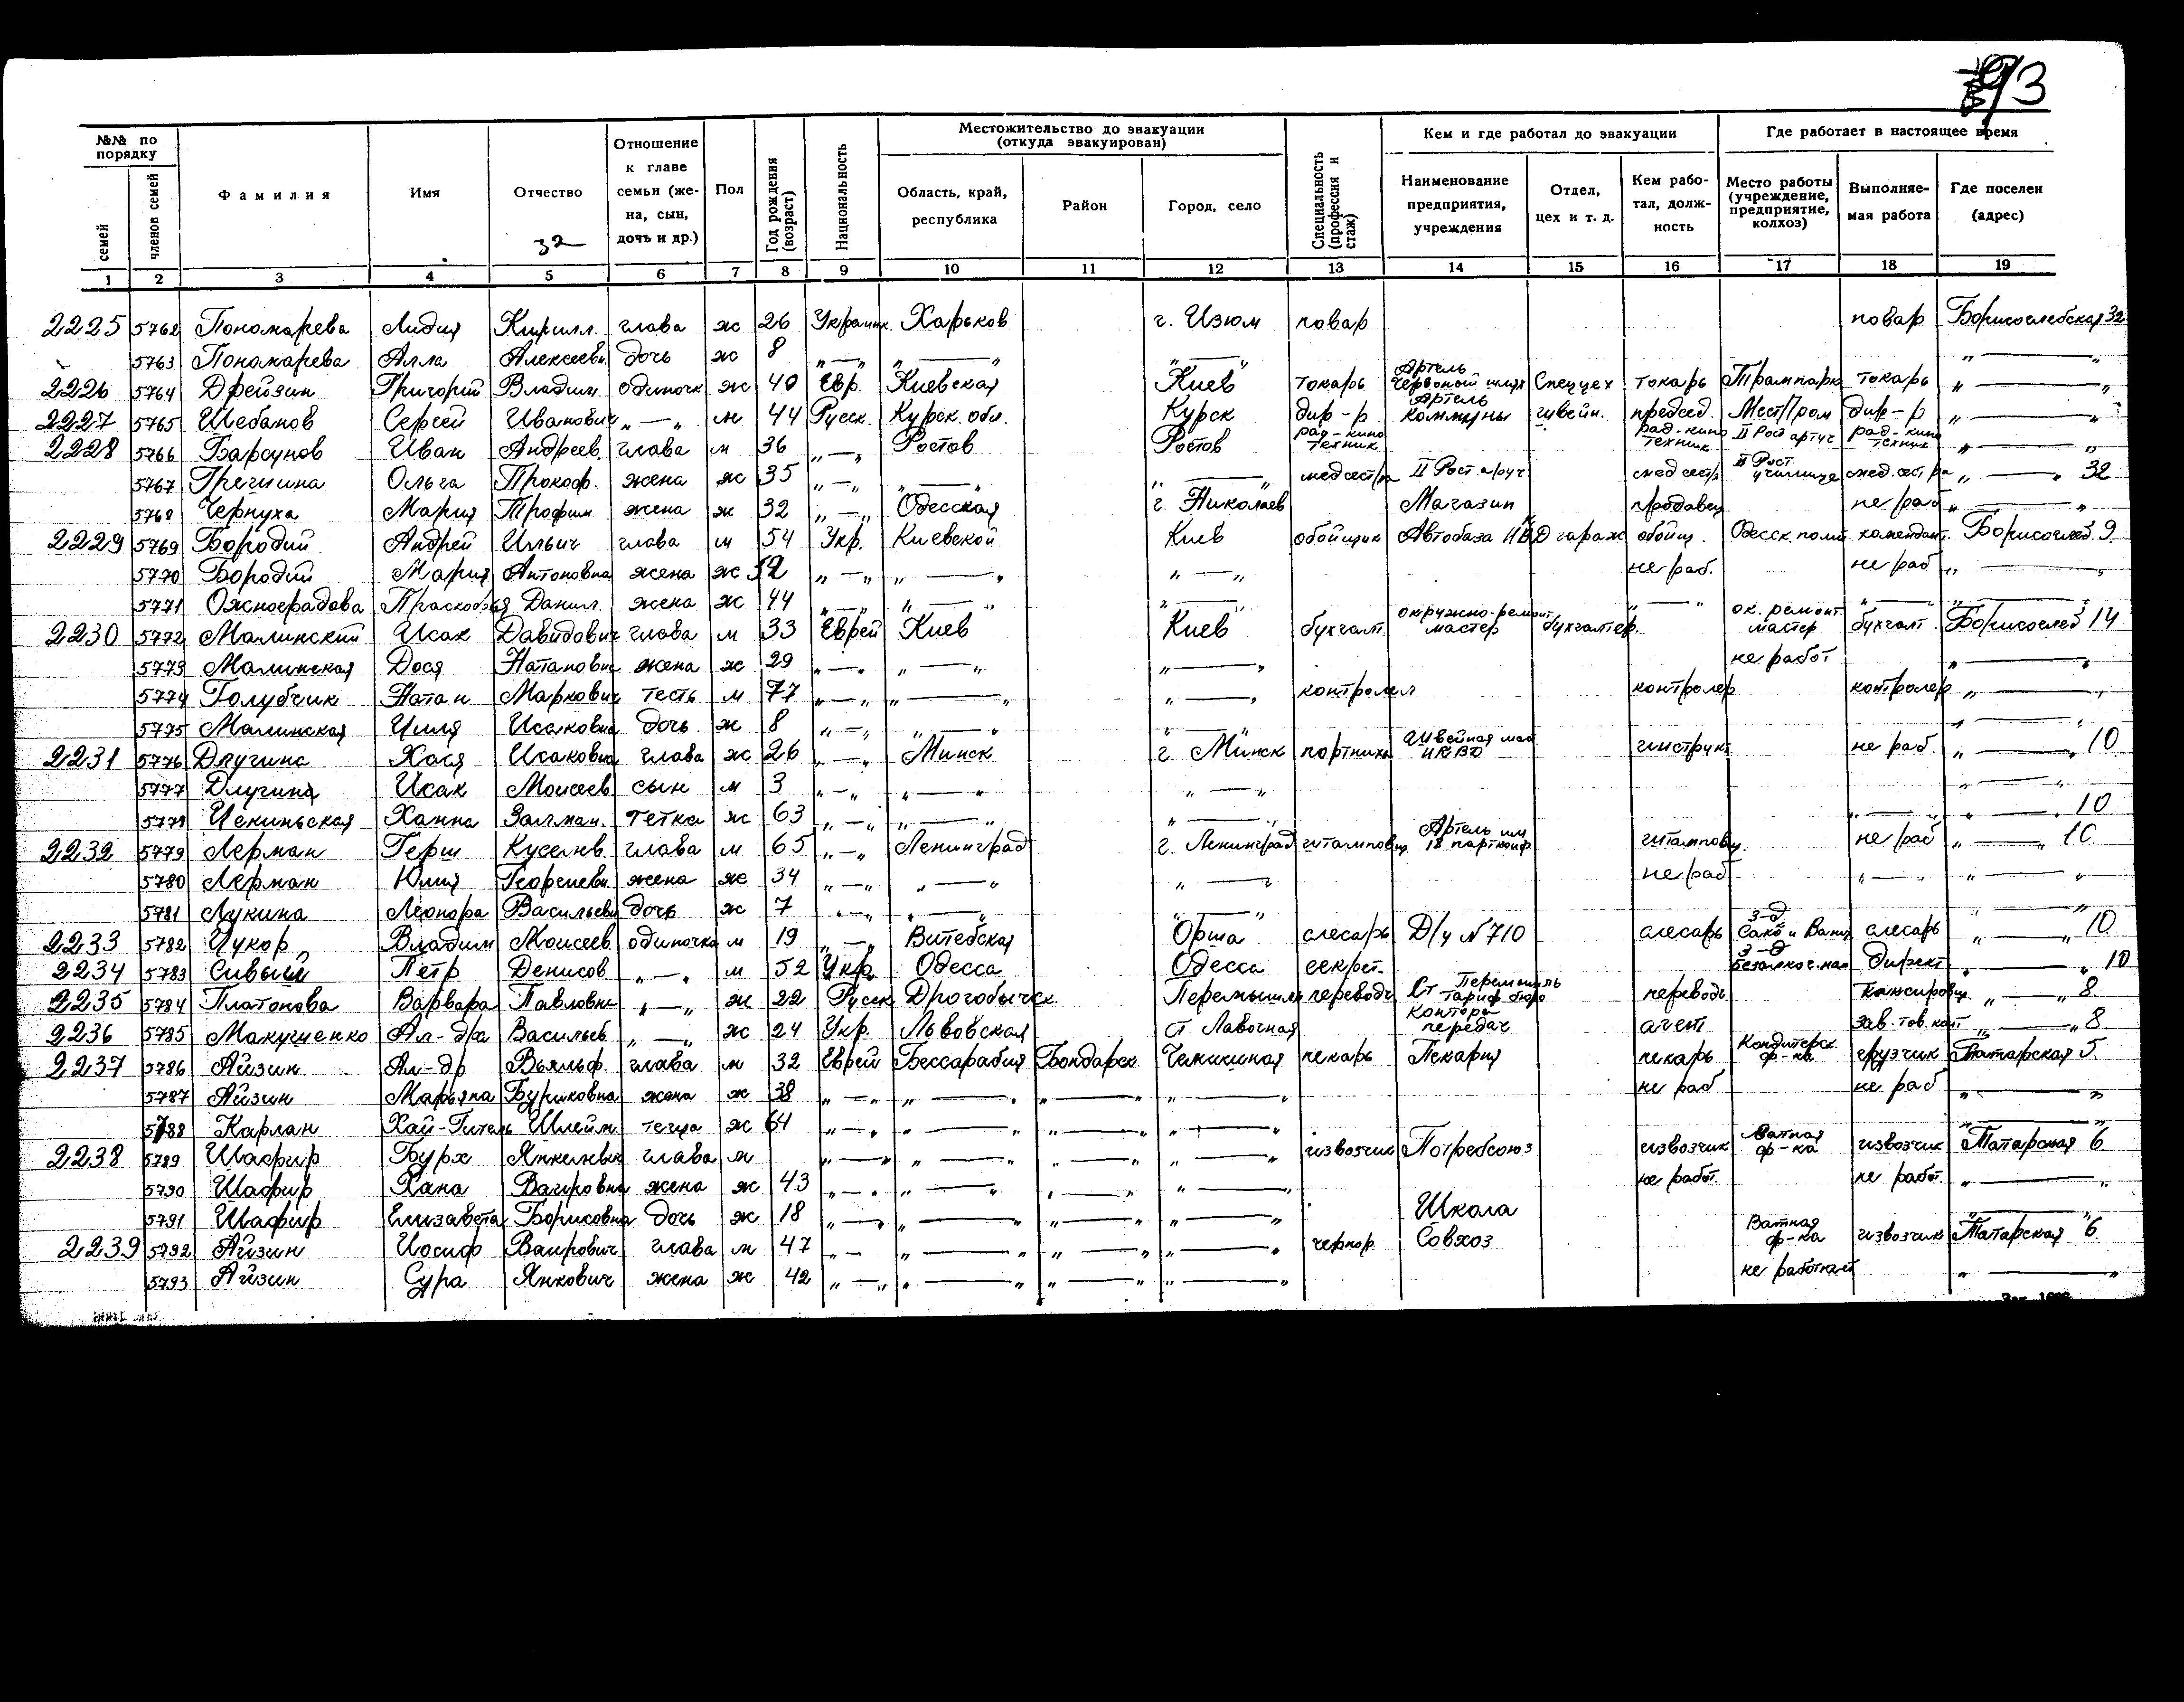 93
№№ по порядку
семей
членов семей
Фамилия
Имя
Отчество
32
Отношение к главе семьи (жена, сын, дочь и др.)
Пол
Год рождения (возраст)
Национальность
Местожительство до эвакуации (откуда эвакуирован)
Область, край, республика
Район
Город, село
Специальность (профессия и стаж)
Кем и где работал до эвакуации
Наименование предприятия, учреждения
Отдел, цех и т. д.
Кем работал, должность
Где работает в настоящее время
Место работы (учреждение, предприятие, колхоз)
Выполняемая работа
Где поселен (адрес)
1 2 3 4 5 6 7 8 9 10 11 12 13 14 15 16 17 18 19
2225 5762 Пономарева Лидия Кирилл. глава ж 26 Украинк. Харьков г. Изюм повар повар Борисоглебская 32
5763 Пономарева Алла Алексеевн. дочь ж 8 „—„ „—„ „—„ „—„
2226 5764 Дрейзин Григорий Владим. одиночк ж 40 Евр. Киевская Киев токарь Артель Червоний шлях Спеццех токарь Трампарк токарь „—„
2227 5765 Шебанов Сергей Иванович „—„ м 44 Русск. Курск. обл. Курск дир-р Артель коммуны швейн. председ. МестПром дир-р „—„
2228 5766 Барсунов Иван Андреев. глава м 36 „—„ Ростов Ростов рад-кино техник рад-кино техник II Рост артуч рад-кино техник „—„
5767 Гречкина Ольга Прокоф. жена ж 35 „—„ „—„ „—„ медсестра II Рост артуч медсестр II Рост училище мед. сестра „—„ 32
5768 Чернуха Мария Трофим. жена ж 32 „—„ Одесская г. Николаев Магазин продавец не раб „—„
2229 5769 Бородий Андрей Ильич глава м 54 Укр. Киевской Киев обойщик Автобаза НКВД гараж обойщ. Одесск. полит комендант. Борисоглеб 9
5770 Бородий Мария Антоновна жена ж 52 „—„ „—„ „—„ не раб. не раб „—„
5771 Ожноградова Прасковья Данил. жена ж 44 „—„ „—„ „—„ „—„ „—„ „—„
2230 5772 Малинский Исак Давидович глава м 33 Еврей Киев Киев бухгалт. окружно-ремонт. мастер бухгалтер. ок. ремонт мастер бухгалт. Борисоглеб 14
5773 Малинская Дося Натановн жена ж 29 „—„ „—„ „—„ не работ „—„
5774 Голубчик Натан Маркович тесть м 77 „—„ „—„ „—„ контролер контролер контролер „—„
5775 Малинская Циля Исаковна дочь ж 8 „—„ „—„ „—„ „—„
2231 5776 Длугина Хася Исаковна глава ж 26 „—„ Минск г. Минск портниха Швейная маст НКВД инструкт не раб. „—„ 10
5777 Длугина Исак Моисеев сын м 3 „—„ „—„ „—„ „—„
5778 Ханна Залман. тетка ж 63 „—„ „—„ „—„ „—„ „—„ 10
2232 5779 Лерман Герш глава м 65 „—„ Ленинград г. Ленинград штамповщ. Артель им 18 партконф штамповщ. не раб „—„ 10
5780 Лерман Юлия Георгиевн. жена ж 34 „—„ „—„ „—„ не раб „—„ „—„
5781 Лукина Леонора Васильевн дочь ж 7 „—„ „—„ „—„ „—„
2233 5782 Цукор Владим Моисеев одиночка м 19 „—„ Витебская Орша слесарь Д/ч №710 слесарь з-д Сако и Ванц слесарь „—„ 10
2234 5783 Сивый Петр Денисов „—„ м 52 Укр. Одесса Одесса секрет. з-д безалког. нап директ. „—„ 10
2235 5784 Платонова Варвара Павловн „—„ ж 22 Русск Дрогобычск. Перемышль переводч Ст Перемышль тариф. бюро переводч таксировщ. „—„ 8
2236 5785 Макущенко Ал-д/ра Васильев. „—„ ж 24 Укр. Львовская ст. Лавочная Контора передач агент зав. тов. конт „—„ 8
2237 5786 Айзин Ал-др Вольф. глава м 32 Еврей Бессарабия Бондарск. пекарь Пекария пекарь Кондитерск. ф-ка грузчик Татарская 5.
5787 Айзин Марьяна жена ж 38 „—„ „—„ „—„ „—„ не раб не раб „—„
5788 Карлан Хай-Гитель Шлейм. теща ж 64 „—„ „—„ „—„ „—„ „—„
2238 5789 Шафир Бурх Янкелевич глава м „—„ „—„ „—„ „—„ извозчик Потребсоюз извозчик Ватная ф-ка извозчик Татарская 6
5790 Шафир Хана жена ж 43 „—„ „—„ „—„ „—„ не работ. не работ. „—„
5791 Шафир Елизавета Борисовна дочь ж 18 „—„ „—„ „—„ „—„ Школа „—„
2239 5792 Айзин Иосиф глава м 47 „—„ „—„ „—„ „—„ чернор. Совхоз Ватная ф-ка извозчик Татарская 6
5793 Айзин Сура Янкович жена ж 42 „—„ „—„ „—„ „—„ не работает „—„